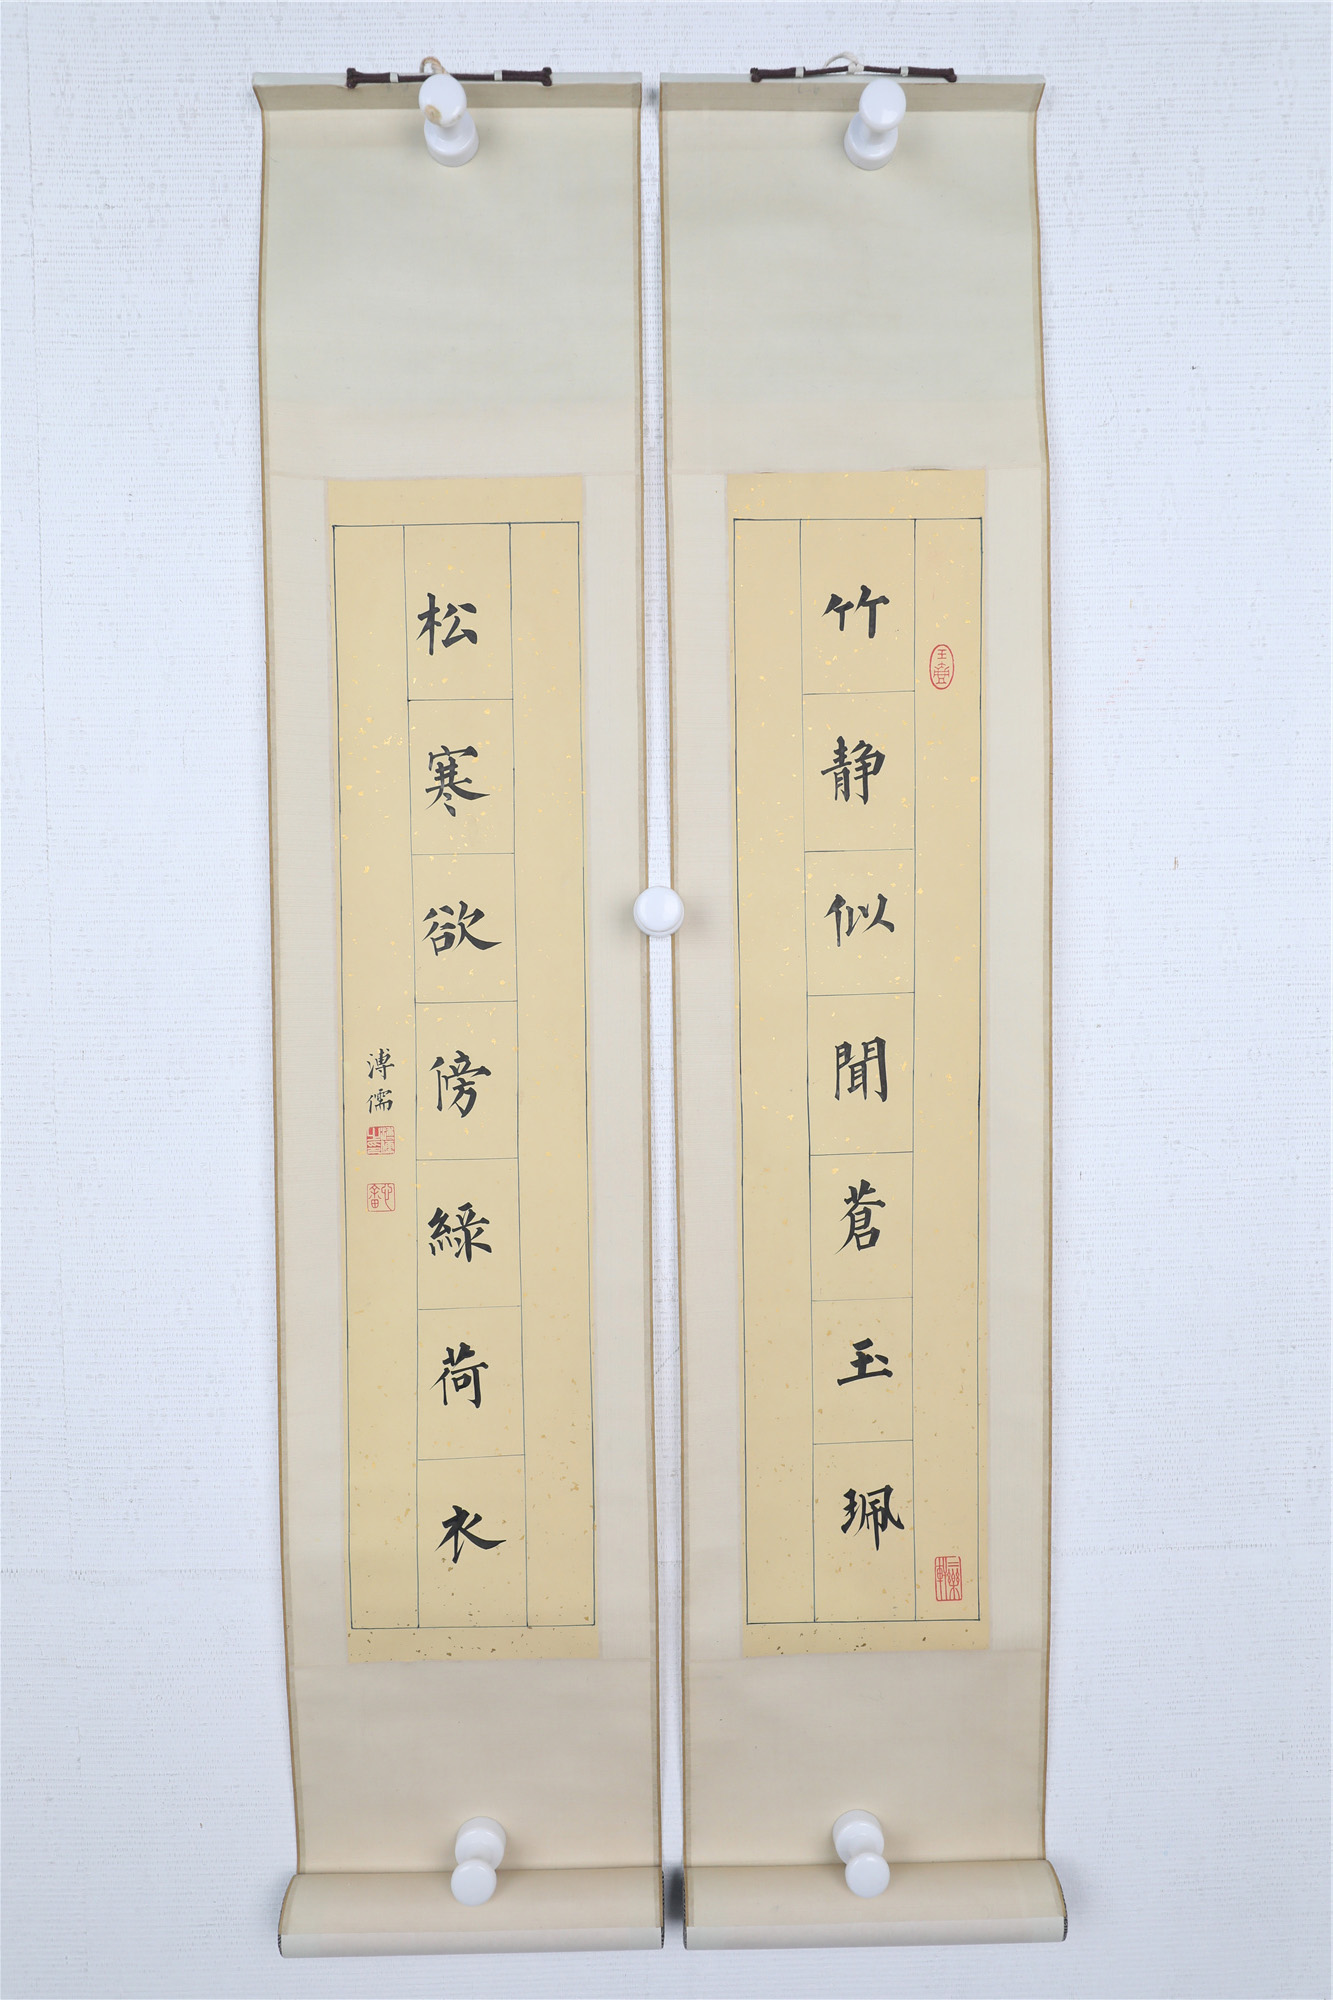 竹静似聞蒼玉珮
松寒欲傍綠荷衣
溥儒